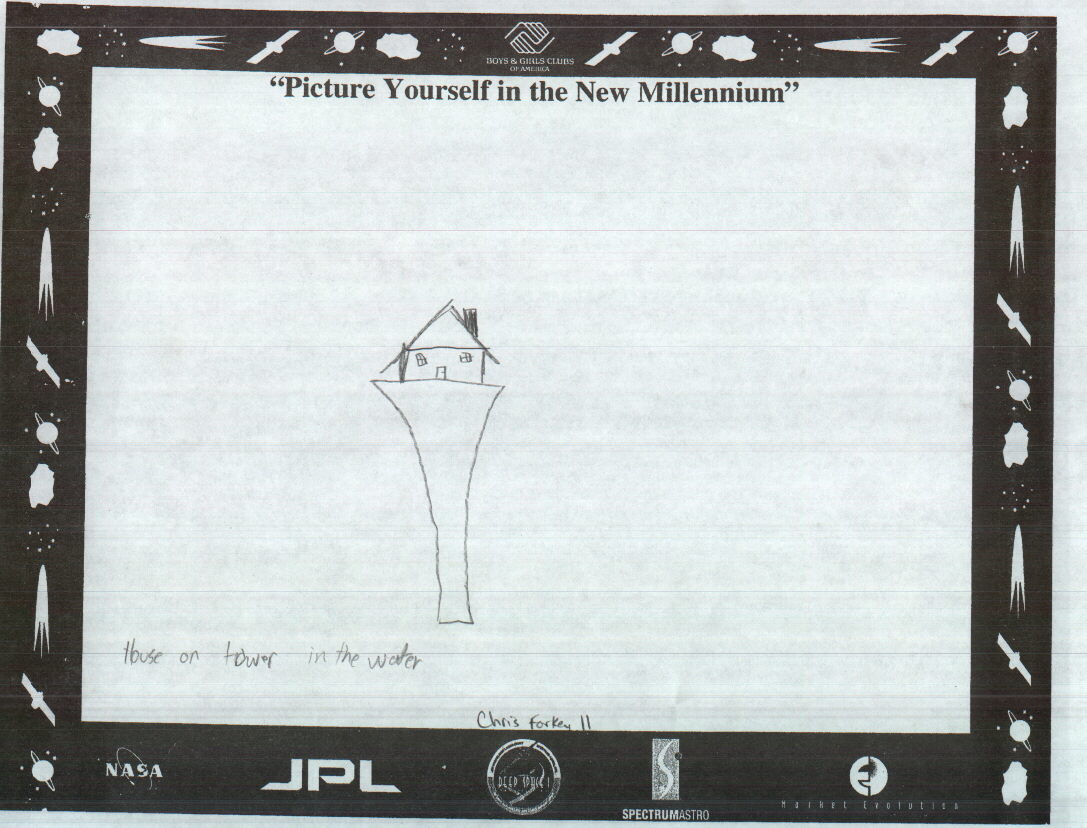 BOYS & GIRLS CLUBS
OF AMERICA
“Picture Yourself in the New Millennium”
House on tower in the water
Chris Forkey 11
NASA
JPL
DEEP SPACE 1
SPECTRUMASTRO
Market Evolution